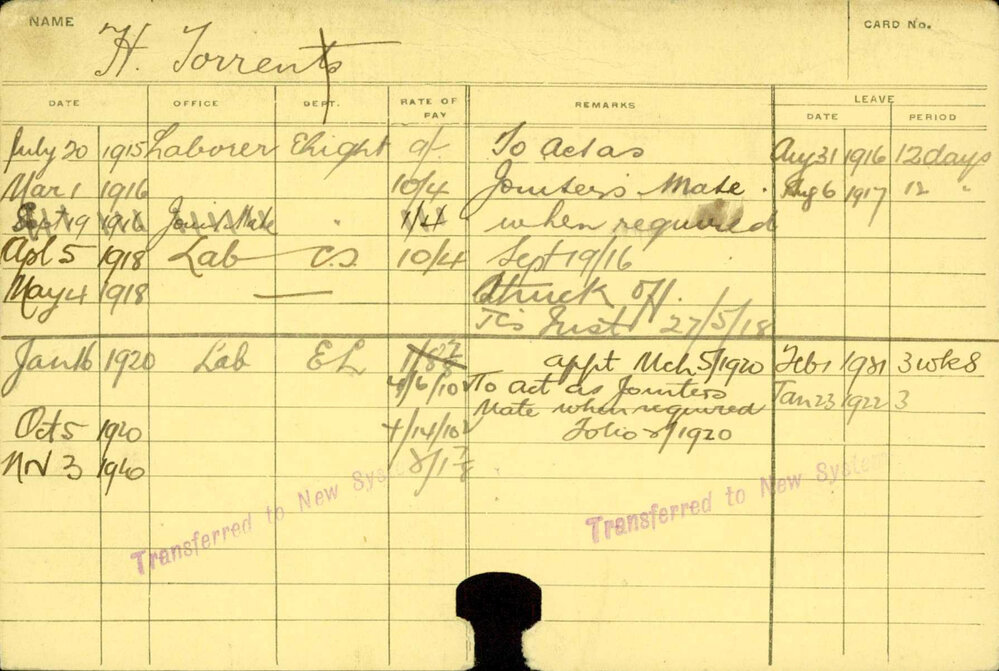 NAME
H. Torrents
CARD No.
DATE OFFICE DEPT. RATE OF PAY REMARKS LEAVE
DATE PERIOD
July 20 1915 Laborer Elight 9/- To act as Aug 31 1916 12 days
Mar 1 1916 10/4 Jointer's Mate. Aug 6 1917 12 "
Sept 19 1916 Join's Mate " 1/4 when required
Apl 5 1918 Lab C.S. 10/4 Sept 19/16
May 4 1918 — Struck off.
27/5/18
Jan 16 1920 Lab EL appt Mch 5/1920 Feb 1 1921 3 wks
4/6/10 To act as Jointers Jan 23 1922 3
Mate when required
Oct 5 1920 4/14/10 Folio 1920
Nov 3 1920
Transferred to New System
Transferred to New System